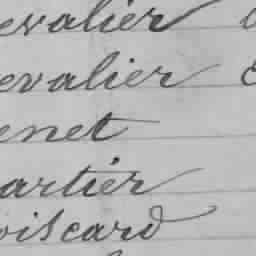 evalier
evalier
enet
artier
oiscard